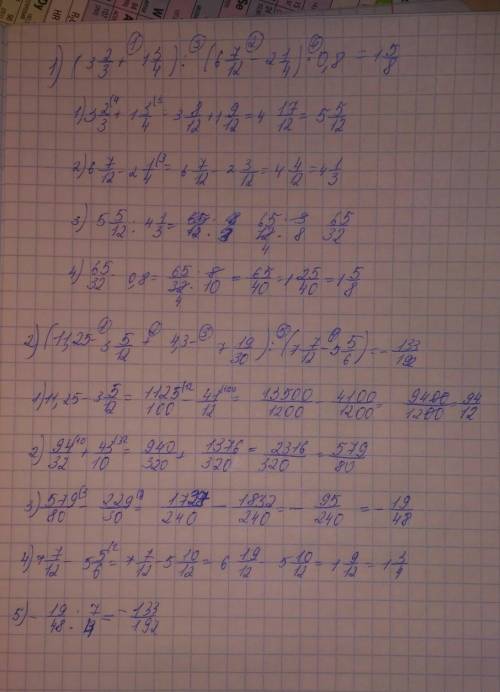 1) (3 2/3 + 1 3/4) : (6 7/12 - 2 1/4) · 0,8 = 1 5/8
1) 3 2/3 + 1 1/4 = 3 8/12 + 1 9/12 = 4 17/12 = 5 5/12
2) 6 7/12 - 2 1/4 = 6 7/12 - 2 3/12 = 4 4/12 = 4 1/3
3) 5 5/12 : 4 1/3 = 65/12 · 65/12 · 3/8 65/32
4) 65/32 · 0,8 = 65/32 · 8/10 = 65/40 = 1 25/40 = 1 5/8
2) (11,25 - 3 5/12 + 4,3 - 7 19/30) : (7 7/12 - 5 5/6) = - 133/192
1) 11,25 - 3 5/12 = 1125/100 - 41/12 = 13500/1200 - 4100/1200 = 9400/1200 = 94/12
2) 94/32 + 43/10 = 940/320 + 1376/320 = 2316/320 = 579/80
3) 579/80 - 229/30 = 1737/240 - 1832/240 = - 95/240 = - 19/48
4) 7 7/12 - 5 5/6 = 7 7/12 - 5 10/12 = 6 19/12 - 5 10/12 = 1 9/12 = 1 3/4
5) - 19/48 : 7/4 = - 133/192